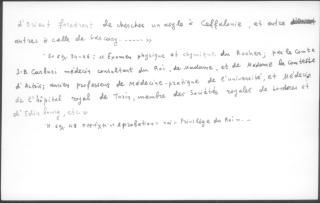 d'Orient forcèrent de chercher un asyle à Céffalonie, et entre
autres à celle de
Examen physique et chymique du Rocher; par le Comte
J-B Carburi médecin consultant du Roi, de Madame, et de Madame la Comtesse
d'Artois; ancien professeur de médecine-pratique de l'université, et Médecin
de l'hôpital royal de Turin, membre des Sociétés royales de Londres et
d'Edinbourg, etc.
approbation Privilège du Roi